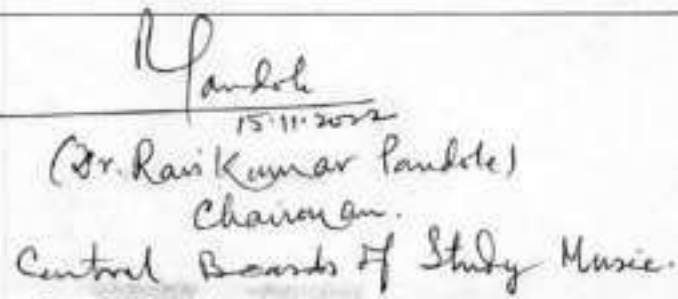 RPandole
15.11.2022
(Dr. Ravi Kumar Pandole)
Chairman.
Central Boards of Study Music.